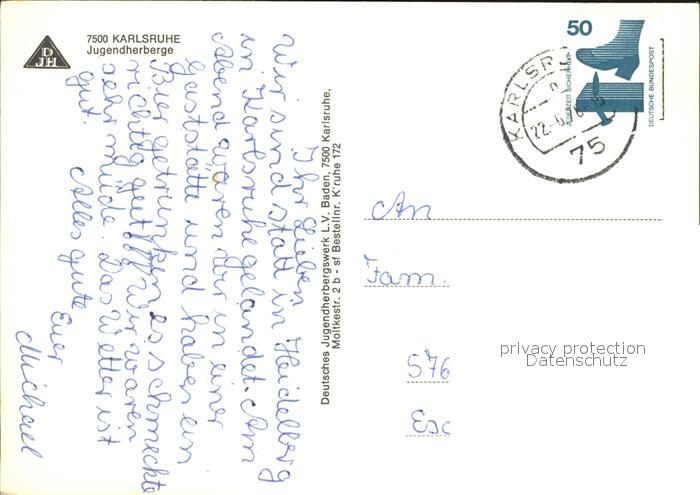 DJH
7500 KARLSRUHE
Jugendherberge
Ihr Lieben
Wir sind statt in Heidelberg
in Karlsruhe gelandet. Am
Abend waren wir in einer
Gaststätte und haben ein
Bier getrunken es schmeckte
richtig gut. Wir waren
sehr müde. Das Wetter ist
gut. Alles gute
Euer
Michael
Deutsches Jugendherbergswerk L.V. Baden, 7500 Karlsruhe,
Moltkestr. 2 b - sf Bestellnr. K'ruhe 172
50
JEDERZEIT SICHERHEIT
DEUTSCHE BUNDESPOST
KARLSR
22.
75
An
Fam.
576
Esc
privacy protection
Datenschutz